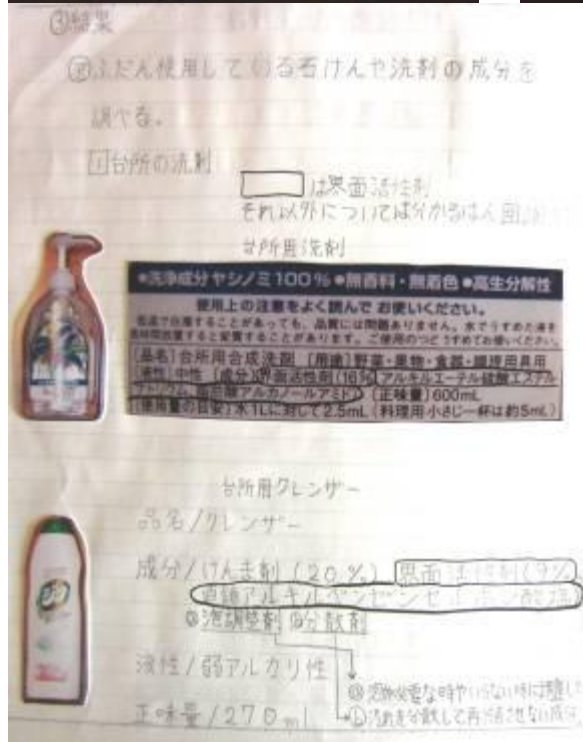 ③結果
ふだん使用している石けんや洗剤の成分を
調べる。
1台所の洗剤
は界面活性剤
それ以外については分かるはん囲
台所用洗剤
●洗浄成分ヤシノミ100%●無香料・無着色●高生分解性
使用上の注意をよく読んでお使いください。
低温で白濁することがあっても、品質には問題ありません。水でうすめた液を
長時間放置すると変質することがあります。ご使用のつどうすめてお使いください。
[品名]台所用合成洗剤 [用途]野菜・果物・食器・調理用具用
[液性]中性 [成分]界面活性剤(16% アルキルエーテル硫酸エステル
ナトリウム、脂肪酸アルカノールアミド) [正味量]600mL
[使用量の目安]水1Lに対して2.5mL(料理用小さじ一杯は約5mL)
台所用クレンザー
品名/クレンザー
成分/けんま剤(20%) 界面活性剤(9%
直鎖アルキルベンゼンスルホン酸塩)
ⓐ泡調整剤 ⓑ分散剤
液性/弱アルカリ性
ⓐ泡が必要な時やいらない時に調整し
正味量/270ml
ⓑ汚れを分散して再付着させない成分